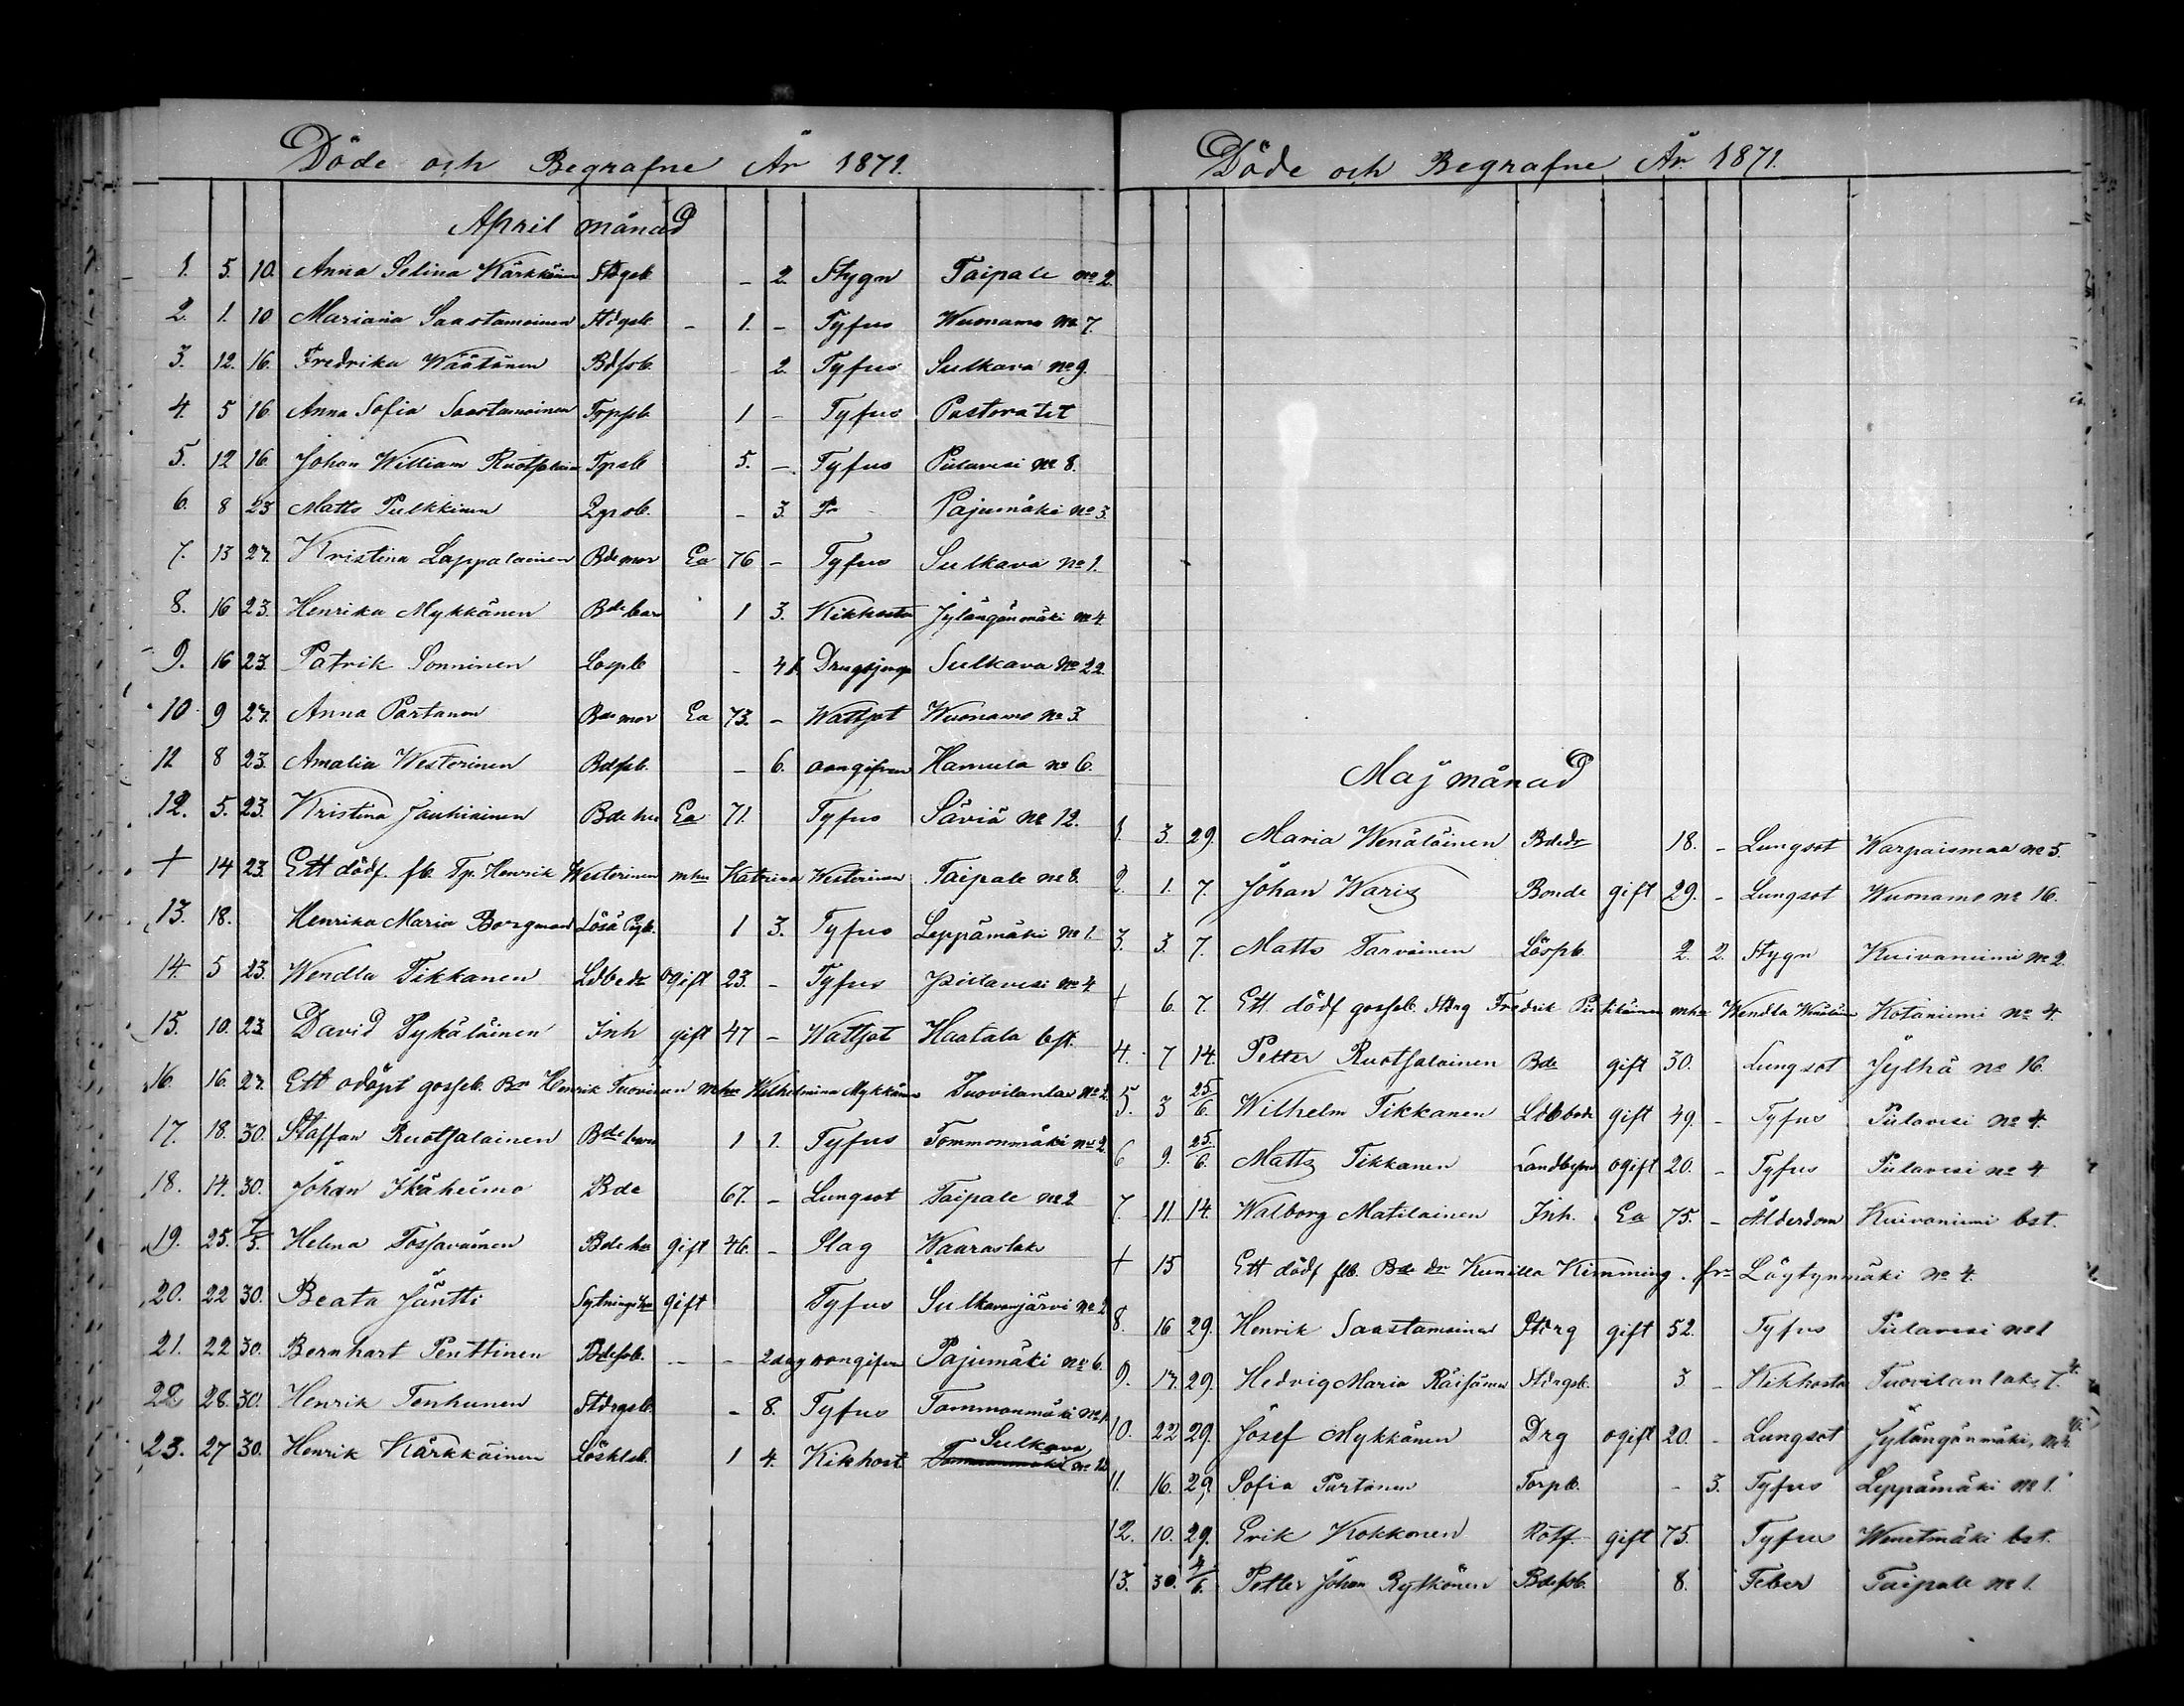 Döde och Begrafne År 1871.
April månad
1. 5. 10. Anna Selina Kärkkäinen - 2. Stygn Taipale no 2.
2. 1. 10 Mariana Saastamoinen Stdgsb. - 1. - Tyfus Wuonamo no 7.
3. 12. 16. Fredrika Wäätänen Bdfsb. - 2. Tyfus Sulkava no 9.
4. 5 16. Anna Sofia Saastamoinen 1 - Tyfus Pastoratet
5. 12 16. Johan William Ruotsalain 5. - Tyfus Pielavesi no 8.
6. 8 23 Matts Pulkkinen - 3. Pajumäki no 3.
7. 13 27. Kristina Lappalainen Bde mor Ea 76 - Tyfus Sulkava no 1.
8. 16 23. Henrika Mykkänen Bde barn 1 3. Kikhosta Jylängönmäki no 4.
9. 16 23. Patrik Sonninen Lospb - Sulkava no 22.
10 9 27. Anna Partanen Bde mor Ea 73. - Wattsot Wuonamo no 3.
12 8 23. Amalia Westerinen Bdfsb. - 6. oangifven Hamula no 6.
12. 5. 23. Kristina Jauhiainen Bde hu Ea 71. Tyfus Säviä no 12.
+ 14 23. Ett dödf. fb. Tp. Henrik Westerinen mhu Katrina Westerinen Taipale no 8.
13. 18. Henrika Maria Borgman Lösa 1 3. Tyfus Leppämäki no 1.
14. 5 23. Wendla Tikkanen Ldbedr ogift 23. - Tyfus Pielavesi no 4
15. 10. 23. David Pykäläinen Inh gift 47 - Wattsot Haatala bst.
16. 16. 27. Ett odöpt gosseb. Bn Henrik Tuovinen mhu Wilhelmina Mykkänen Tuovilanlax no 2.
17. 18. 30. Staffan Ruotsalainen Bde barn 1 1. Tyfus Tommonmäki no 2.
18. 14. 30. Johan Ikäheimo Bde 67. - Lungsot Taipale no 2
19. 25. 7/5. Helena Tossavainen Bde hu gift 46. - Slag Wauraslaks
20. 22 30. Beata Jäntti Sytnings hu gift Tyfus Sulkavanjärvi no 2
21. 22 30. Bernhart Penttinen Bdesb. - - 2 dag oangifven Pajumäki no 6.
22 28. 30. Henrik Tenhunen Stdrgsb. - 8. Tyfus Tommonmäki no 1.
23. 27 30. Henrik Kärkkäinen Lösklsb. 1 4. Kikhost Sulkava no 12
Döde och Begrafne År 1871.
Maj månad
1. 3. 29. Maria Wenäläinen Bdedr 18. - Lungsot Warpaismaa no 5.
2. 1. 7. Johan Waris Bonde gift 29. - Lungsot Wuonamo no 16.
3. 3. 7. Matts Tarvainen Löspb. 2 2. Stygn Kuivaniemi no 2.
+ 6. 7. Ett dödf gosseb. Stdrg Fredrik Pietikäinen mhu Wendla Wenäläin Kotaniemi no 4.
4. 7 14. Petter Ruotsalainen Bde gift 30. Lungsot Jylhä no 16.
5. 3 25/6. Wilhelm Tikkanen Ldbbode gift 49. - Tyfus Pielavesi no 4.
6 9. 25/6. Matts Tikkanen Landbsn ogift 20. - Tyfus Pielavesi no 4
7. 11. 14. Walborg Matilainen Inh. Ea 75. - Ålderdom Kuivaniemi bst.
+ 15 Ett dödf flb. Bde dr Kunilla Kimming. frn Löytynmäki no 4.
8. 16 29. Henrik Saastamoinen Stdrg gift 52. Tyfus Pielavesi no 1
9. 17. 29. Hedvig Maria Räisänen Stdrgsb. 3 - Kikhosta Tuovilanlaks 7.
10. 22 29. Josef Mykkänen Drg ogift 20. - Lungsot Jylängönmäki,
11. 16. 29. Sofia Partanen Torpb. - 3. Tyfus Leppämäki no 1.
12. 10. 29. Erik Kokkonen Rotf. gift 75. Tyfus Wenetmäki bst.
13. 30. 4/6. Petter Johan Rytkönen Bdefsb. 8. Feber Taipale no 1.